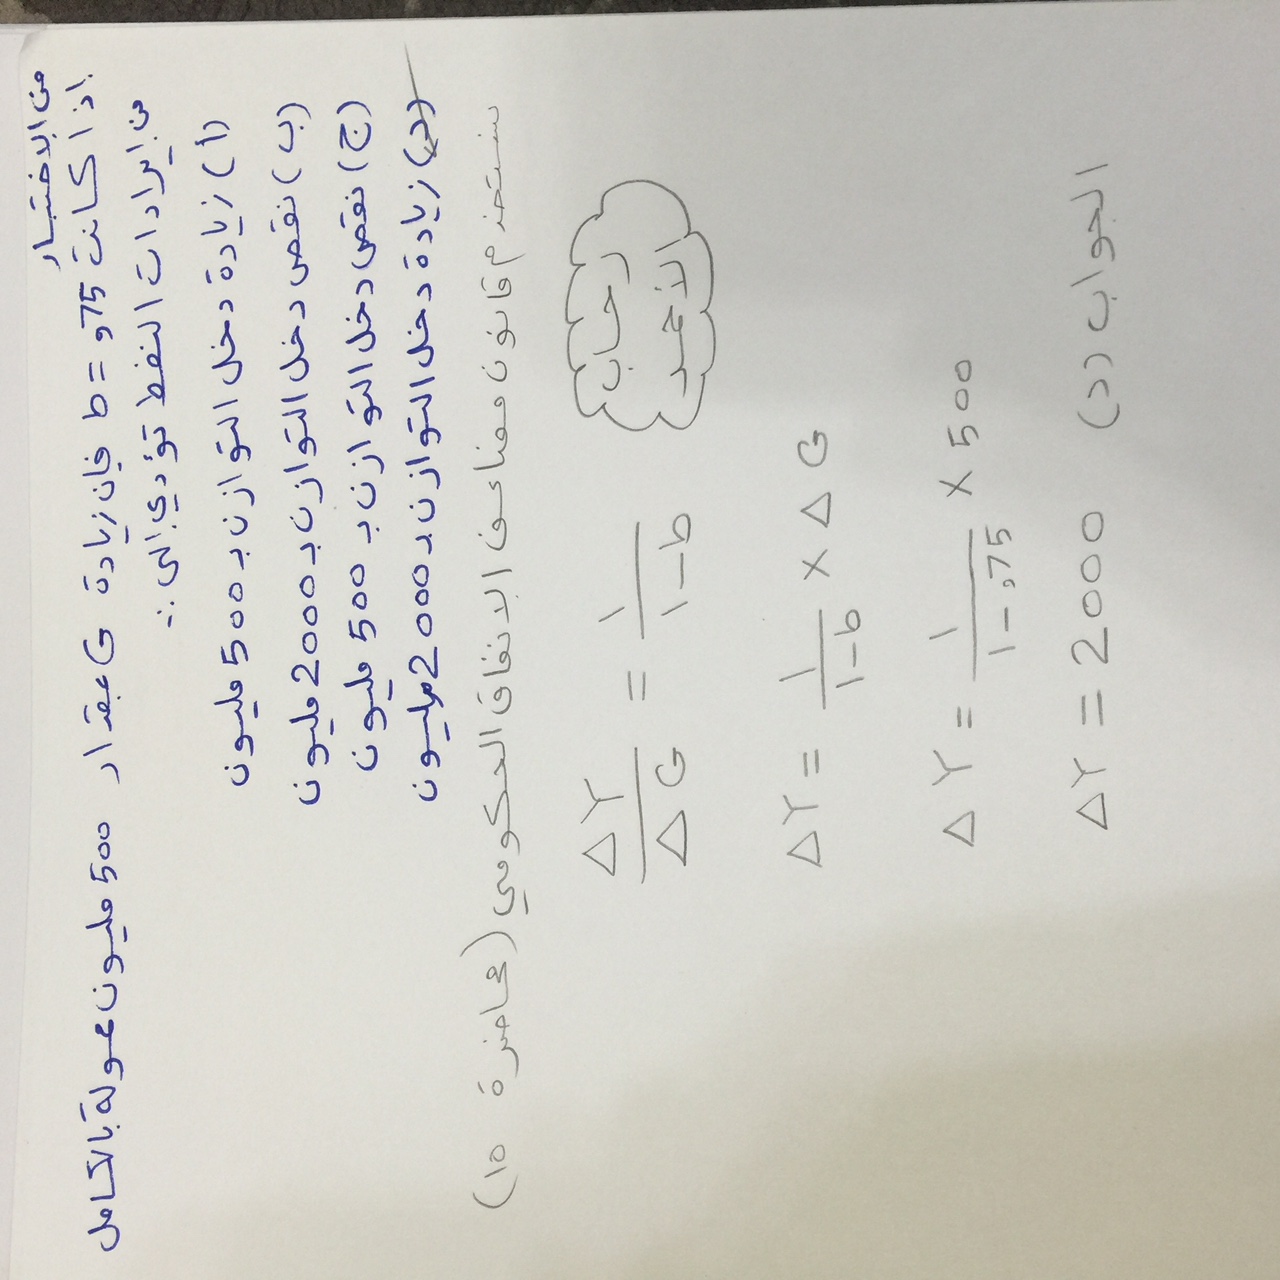 من الاختبار
اذا كانت b = ,75 فإن زيادة G بمقدار 500 مليون ممولة بالكامل
من ايرادات النفط تؤدي الى :-
(أ) زيادة دخل التوازن بـ 500 مليون
(ب) نقص دخل التوازن بـ 2000 مليون
(ج) نقص دخل التوازن بـ 500 مليون
(د) زيادة دخل التوازن بـ 2000 مليون
نستخدم قانون مضاعف الانفاق الحكومي (محاضرة 10)
ΔY/ΔG = 1/1-b
ΔY = 1/1-b × ΔG
ΔY = 1/1-,75 × 500
ΔY = 2000 الجواب (د)